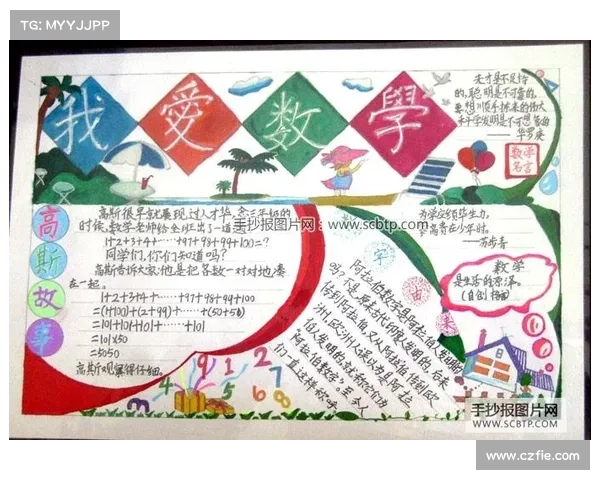 TG: MYYJJPP
我 愛 數 學
天才是不足恃
的，聪明是不可靠的，
要想顺手拣来的伟大
科学发明是不可想象的
——华罗庚
数学
名言
高斯故事
高斯很早就展现过人才华,念三年级的
时候,数学老师给全班出了一道
1+2+3+4……+97+98+99+100=?
同学们,你们知道吗?
高斯告诉大家:他是把各数一对对地凑
在一起。
1+2+3+4+……+97+98+99+100
=(1+100)+(2+99)+……(50+51)
=101+101+101+……+101
=101×50
=5050
手抄报图片网
www.scbtp.com
数
字
由
来
阿拉伯数字是阿拉伯人发明的
吗?不是,原来古代印度人发明的,后来
传到阿拉伯,又从阿拉伯传到欧
洲,欧洲人误以为是阿拉
伯人发明的,就称它们为
"阿拉伯数字"至今人
们一直这样称呼
为学应须毕生力,
攀高贵在少年时。
——苏步青
数学
是生活的源泽。
9 1 2
4 7
5 6 8
3
手抄报图片网
WWW.SCBTP.COM
www.czfie.com